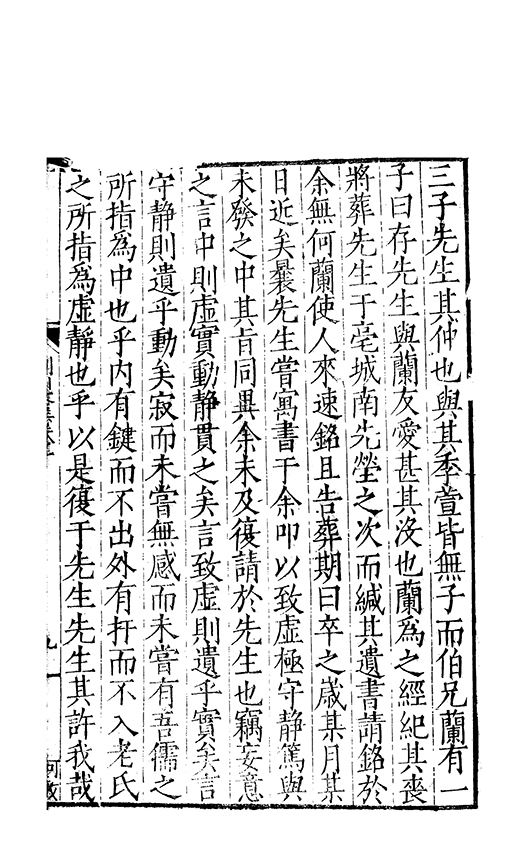 三子先生其仲也與其季萱皆無子而伯兄蘭有一
子曰存先生與蘭友愛甚其沒也蘭為之經紀其喪
將葬先生于亳城南先塋之次而緘其遺書請銘於
余無何蘭使人來速銘且告葬期曰卒之歲某月某
日近矣曩先生嘗寓書于余叩以致虛極守静篤與
未發之中其旨同異余未及復請於先生也竊妄意
之言中則虛實動静貫之矣言致虛則遺乎實矣言
守静則遺乎動矣寂而未嘗無感而未嘗有吾儒之
所指為中也乎内有鍵而不出外有扞而不入老氏
之所指為虛靜也乎以是復于先生先生其許我哉